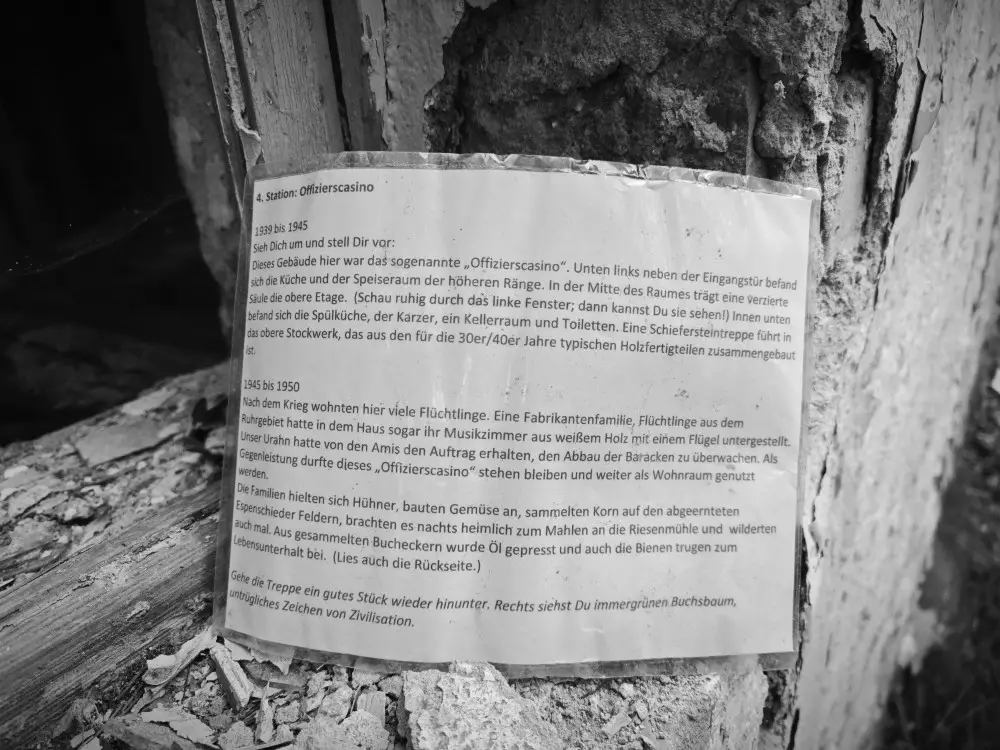 4. Station: Offizierscasino
1939 bis 1945
Sieh Dich um und stell Dir vor:
Dieses Gebäude hier war das sogenannte „Offizierscasino“. Unten links neben der Eingangstür befand
sich die Küche und der Speiseraum der höheren Ränge. In der Mitte des Raumes trägt eine verzierte
Säule die obere Etage. (Schau ruhig durch das linke Fenster; dann kannst Du sie sehen!) Innen unten
befand sich die Spülküche, der Karzer, ein Kellerraum und Toiletten. Eine Schiefersteintreppe führt in
das obere Stockwerk, das aus den für die 30er/40er Jahre typischen Holzfertigteilen zusammengebaut
ist.
1945 bis 1950
Nach dem Krieg wohnten hier viele Flüchtlinge. Eine Fabrikantenfamilie, Flüchtlinge aus dem
Ruhrgebiet hatte in dem Haus sogar ihr Musikzimmer aus weißem Holz mit einem Flügel untergestellt.
Unser Urahn hatte von den Amis den Auftrag erhalten, den Abbau der Baracken zu überwachen. Als
Gegenleistung durfte dieses „Offizierscasino“ stehen bleiben und weiter als Wohnraum genutzt
werden.
Die Familien hielten sich Hühner, bauten Gemüse an, sammelten Korn auf den abgeernteten
Espenschieder Feldern, brachten es nachts heimlich zum Mahlen an die Riesenmühle und wilderten
auch mal. Aus gesammelten Bucheckern wurde Öl gepresst und auch die Bienen trugen zum
Lebensunterhalt bei. (Lies auch die Rückseite.)
Gehe die Treppe ein gutes Stück wieder hinunter. Rechts siehst Du immergrünen Buchsbaum,
untrügliches Zeichen von Zivilisation.